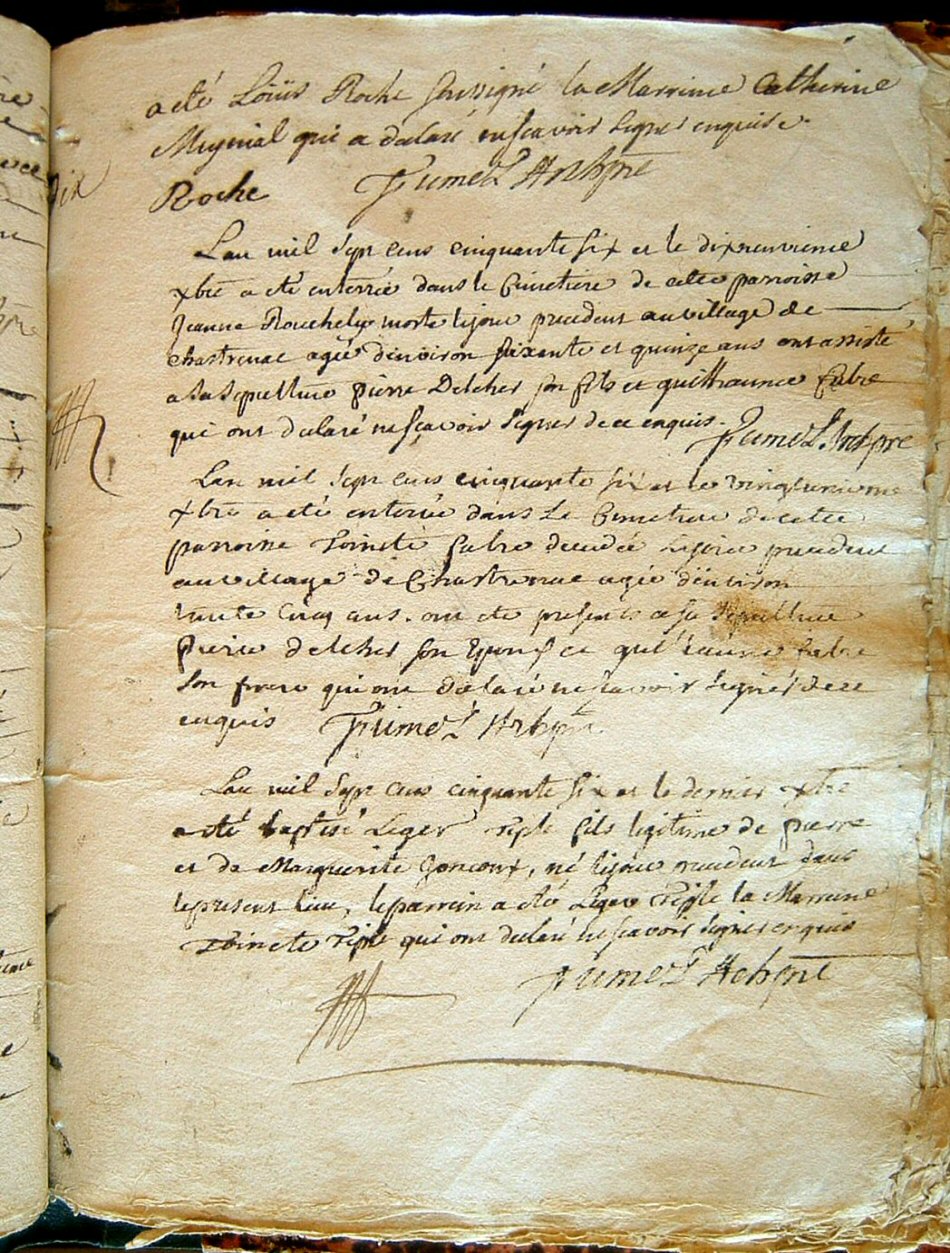 a été Loüis Roche soussigné la Marrinne Catherine
qui a declaré ne sçavoir signer enquise.
dix
Roche Jumel
Lan mil sept cens cinquante six et le dixneuvieme
xbre a eté enterrée dans le Cimetiere de cette parroisse
Jeanne morte le jour precedent au village de
Chastrenac agée denviron soixante et quinze ans ont assisté
a sa sepulture pierre Delcher son fils et guilhaume fabre
qui ont declaré ne sçavoir signer de ce enquis. Jumel
Lan mil sept cens cinquante six et le vingtunieme
xbre a eté enterrée dans Le Cimetiere de cette
parroisse Toinete fabre decedée Le jour precedent
au village de Chastrenac agée denviron
trente Cinq ans. ont ete presents a sa sepulture
pierre delcher son Epoux et guilhaume fabre
son frere qui ont declaré ne sçavoir signer de ce
enquis Jumel
Lan mil sept cens cinquante six et le dernier xbre
a eté baptisé Leger fils legitime de pierre
et de Marguerite né le jour precedent dans
le present lieu, le parrein a eté Leger la Marrinne
Toinete qui ont declaré ne sçavoir signer enquis
Jumel